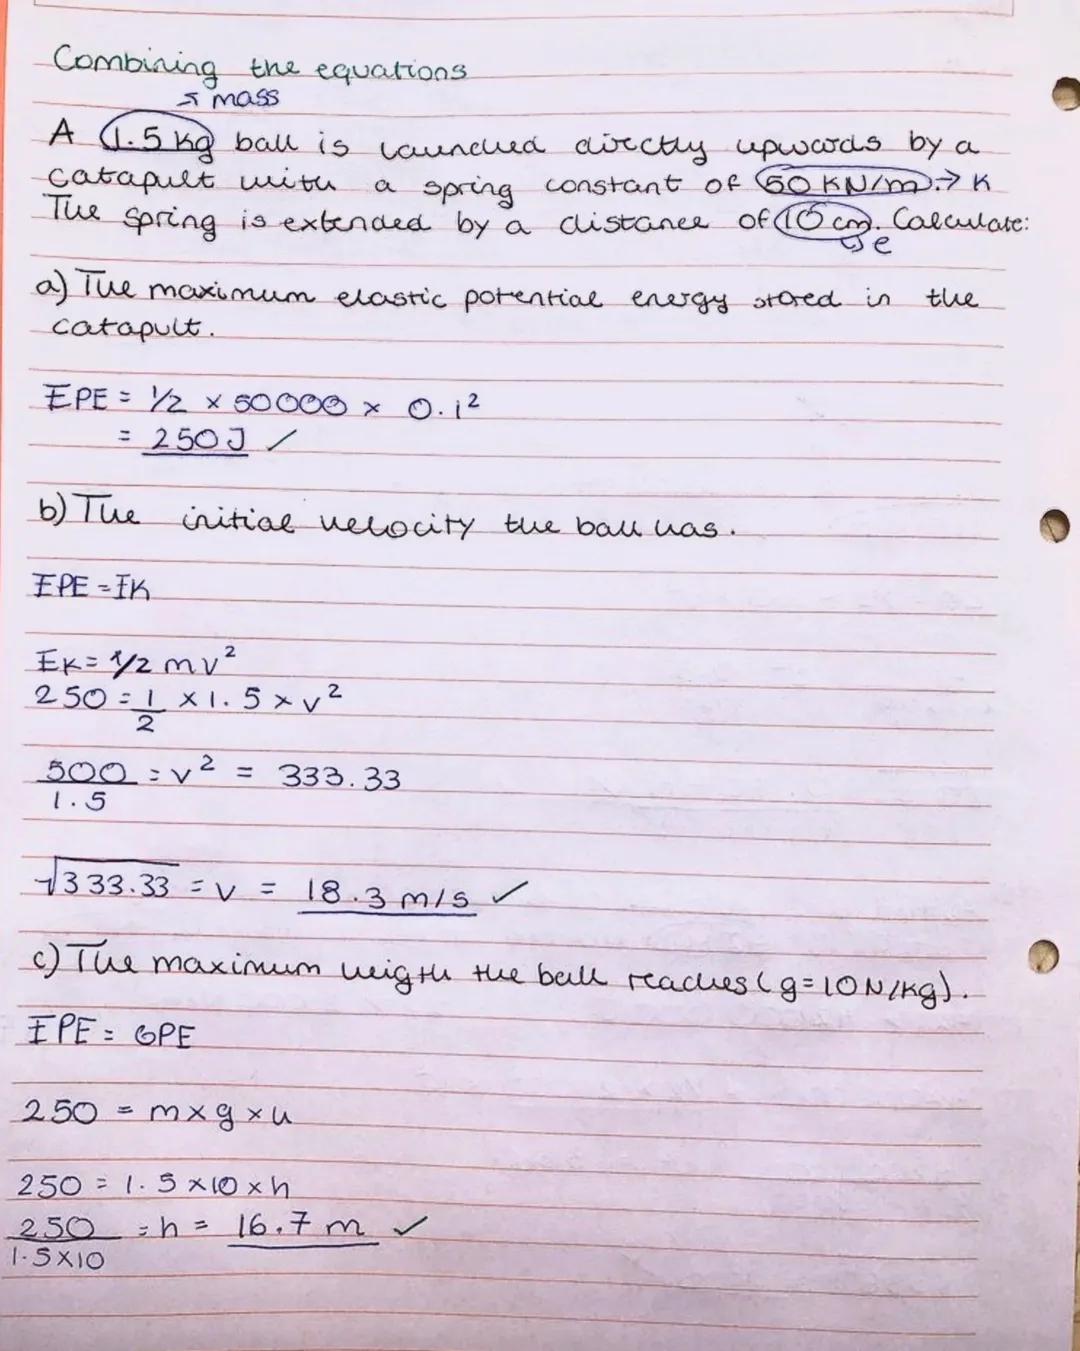 Combining the equations
→ mass
A 1.5 kg ball is launched directly upwards by a
catapult with a spring constant of 50 KN/m. → K
The spring is extended by a distance of 10 cm. Calculate:
→ e
a) The maximum elastic potential energy stored in the
catapult.
EPE = 1/2 × 50000 × 0.1²
= 250J ✓
b) The initial velocity the ball has.
EPE = EK
EK = 1/2 mv²
250 = 1/2 × 1.5 × v²
500/1.5 = v² = 333.33
√333.33 = v = 18.3 m/s ✓
c) The maximum heigth the ball reaches (g = 10N/kg).
EPE = GPE
250 = m × g × h
250 = 1.5 × 10 × h
250/1.5×10 = h = 16.7 m ✓